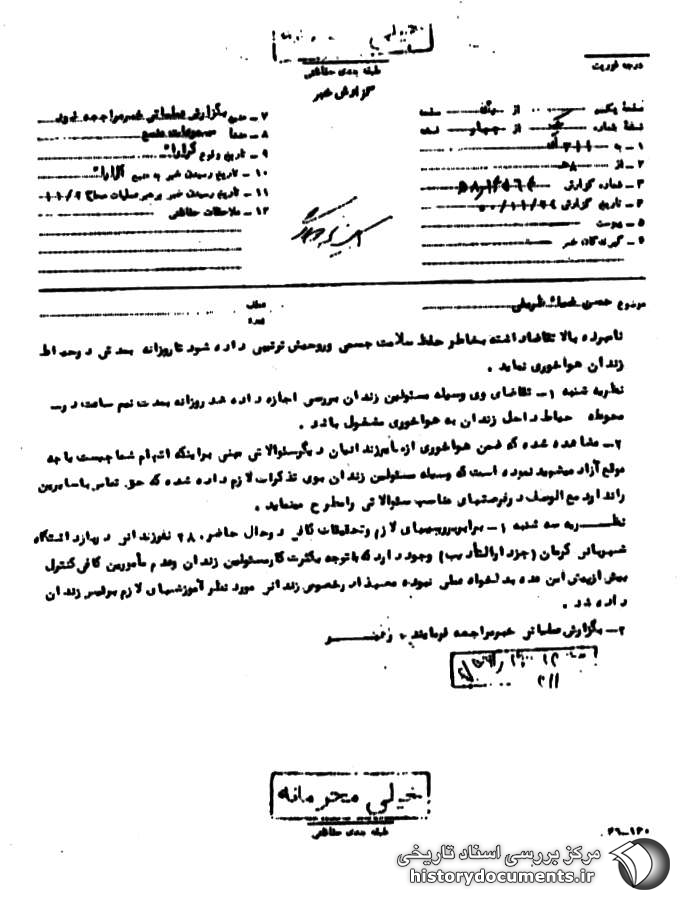 خیلی محرمانه
طبقه بندی حفاظتی
درجه فوریت
گزارش خبر
صفحه یکم از صفحه
نسخه شماره از چهار نسخه
۱ - به ۳۱۱
۲ - از ۸ ه
۳ - شماره گزارش
۴ - تاریخ گزارش
۵ - پیوست
۶ - گیرندگان خبر
۷ - منبع بگزارش عملیاتی خبر مراجعه شود
۸ - منشأ مسموعات منبع
۹ - تاریخ وقوع
۱۰ - تاریخ رسیدن خبر به منبع
۱۱ - تاریخ رسیدن خبر برهبر عملیات
۱۲ - ملاحظات حفاظتی
موضوع حسن ضیاء ظریفی
عطف
پیرو
نامبرده بالا تقاضا داشته بخاطر حفظ سلامت جسمی و روحیش ترتیبی داده شود تا روزانه بمدتی در حیاط
زندان هواخوری نماید .
نظریه شنبه ۱ـ تقاضای وی وسیله مسئولین زندان بررسی اجازه داده شد روزانه بمدت نیم ساعت در ـ
محوطه حیاط داخل زندان به هواخوری مشغول باشد .
۲ـ مشاهده شده که ضمن هواخوری از سایر زندانیان دیگر سئوالاتی مبنی براینکه اتهام شما چیست یا چه
موقع آزاد میشوید نموده است که وسیله مسئولین زندان بوی تذکرات لازم داده شده که حق تماس با سایرین
را ندارد مع الوصف در فرصتهای مناسب سئوالاتی را مطرح مینماید .
نظریه سه شنبه ۱ـ برابر بررسیهای لازم و تحقیقات کافی در حال حاضر ۲۸۰ نفر زندانی در بازداشتگاه
شهربانی کرمان (جزء دارالتأدیب) وجود دارد که با توجه بکثرت کار مسئولین زندان و عدم مأمورین کافی کنترل
بیش از پیش این عده بدلخواه عملی نبوده معهذا در خصوص زندانی مورد نظر آموزشهای لازم برئیس زندان
داده شد .
۲ـ بگزارش عملیاتی خبر مراجعه فرمایند .
۳۱۱
خیلی محرمانه
طبقه بندی حفاظتی
۲۶-۱۲۰
مرکز بررسی اسناد تاریخی
historydocuments.ir